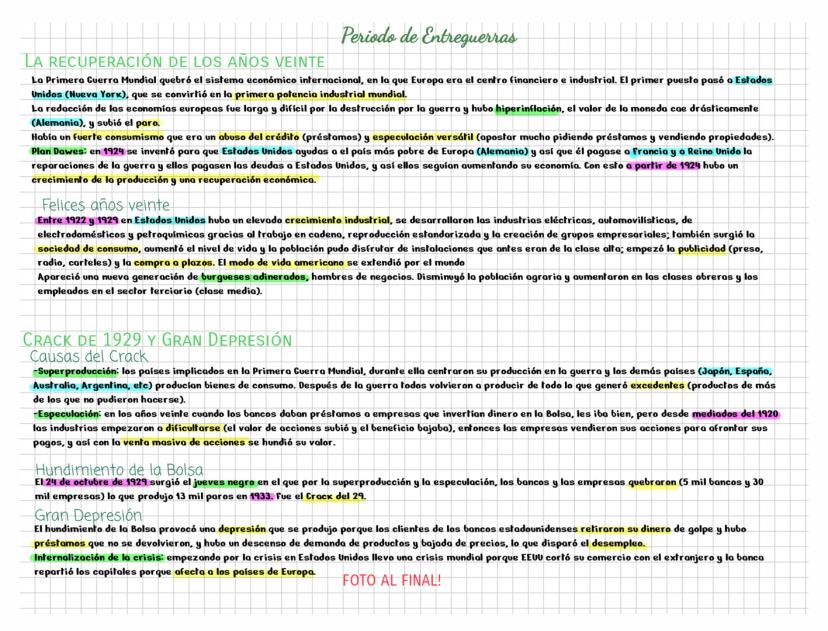 Periodo de Entreguerras
LA RECUPERACIÓN DE LOS AÑOS VEINTE
La Primera Guerra Mundial quebró el sistema económico internacional, en la que Europa era el centro financiero e industrial. El primer puesto pasó a Estados
Unidos (Nueva York), que se convirtió en la primera potencia industrial mundial.
La redacción de las economías europeas fue larga y difícil por la destrucción por la guerra y hubo hiperinflación, el valor de la moneda cae drásticamente
(Alemania), y subió el paro.
Había un fuerte consumismo que era un abuso del crédito (préstamos) y especulación versátil (apostar mucho pidiendo préstamos y vendiendo propiedades).
Plan Dawes: en 1924 se inventó para que Estados Unidos ayudas a el país más pobre de Europa (Alemania) y así que él pagase a Francia y a Reino Unido la
reparaciones de la guerra y ellos pagasen las deudas a Estados Unidos, y así ellos seguían aumentando su economía. Con esto a partir de 1924 hubo un
crecimiento de la producción y una recuperación económica.
Felices años veinte
Entre 1922 y 1929 en Estados Unidos hubo un elevado crecimiento industrial, se desarrollaron las industrias eléctricas, automovilísticas, de
electrodomésticos y petroquímicas gracias al trabajo en cadena, reproducción estandarizada y la creación de grupos empresariales; también surgió la
sociedad de consumo, aumentó el nivel de vida y la población pudo disfrutar de instalaciones que antes eran de la clase alta; empezó la publicidad (preso,
radio, carteles) y la compra a plazos. El modo de vida americano se extendió por el mundo
Apareció una nueva generación de burgueses adinerados, hombres de negocios. Disminuyó la población agraria y aumentaron en las clases obreras y los
empleados en el sector terciario (clase media).
CRACK DE 1929 Y GRAN DEPRESIÓN
Causas del Crack
-Superproducción: los países implicados en la Primera Guerra Mundial, durante ella centraron su producción en la guerra y los demás países (Japón, España,
Australia, Argentina, etc) producían bienes de consumo. Después de la guerra todos volvieron a producir de todo lo que generó excedentes (productos de más
de los que no pudieron hacerse).
-Especulación: en los años veinte cuando los bancos daban préstamos a empresas que invertían dinero en la Bolsa, les iba bien, pero desde mediados del 1920
las industrias empezaron a dificultarse (el valor de acciones subió y el beneficio bajaba), entonces las empresas vendieron sus acciones para afrontar sus
pagos, y así con la venta masiva de acciones se hundió su valor.
Hundimiento de la Bolsa
El 24 de octubre de 1929 surgió el jueves negro en el que por la superproducción y la especulación, los bancos y las empresas quebraron (5 mil bancos y 30
mil empresas) lo que produjo 13 mil paros en 1933. Fue el Crack del 29.
Gran Depresión
El hundimiento de la Bolsa provocó una depresión que se produjo porque los clientes de los bancos estadounidenses retiraron su dinero de golpe y hubo
préstamos que no se devolvieron, y hubo un descenso de demanda de productos y bajada de precios, lo que disparó el desempleo.
Internalización de la crisis: empezando por la crisis en Estados Unidos llevo una crisis mundial porque EEUU cortó su comercio con el extranjero y la banca
repartió los capitales porque afecta a los países de Europa.
FOTO AL FINAL!